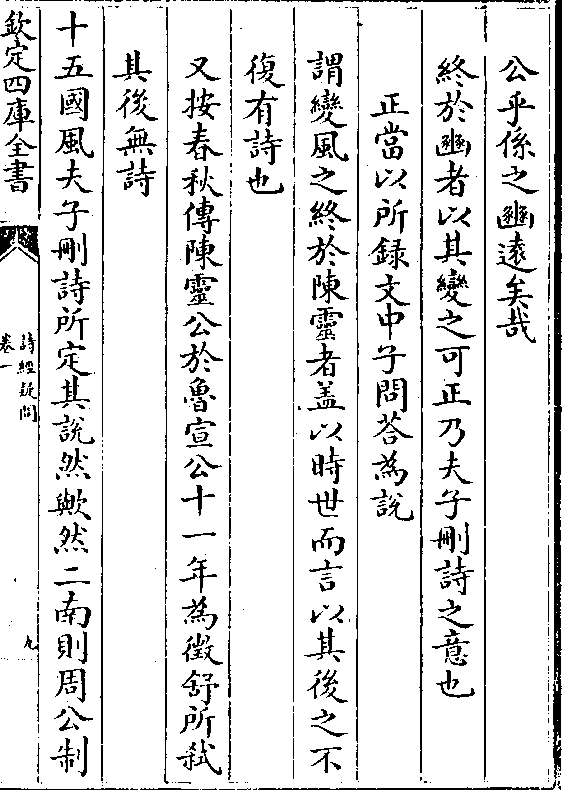 公乎係之豳遠矣哉
終於豳者以其變之可正乃夫子刪詩之意也
正當以所録文中子問荅為說
謂變風之終於陳靈者盖以時世而言以其後之不
復有詩也
又按春秋傳陳靈公於魯宣公十一年為徵舒所弑
其後無詩
十五國風夫子刪詩所定其說然歟然二南則周公制
欽定四庫全書
詩經疑問
卷一
九